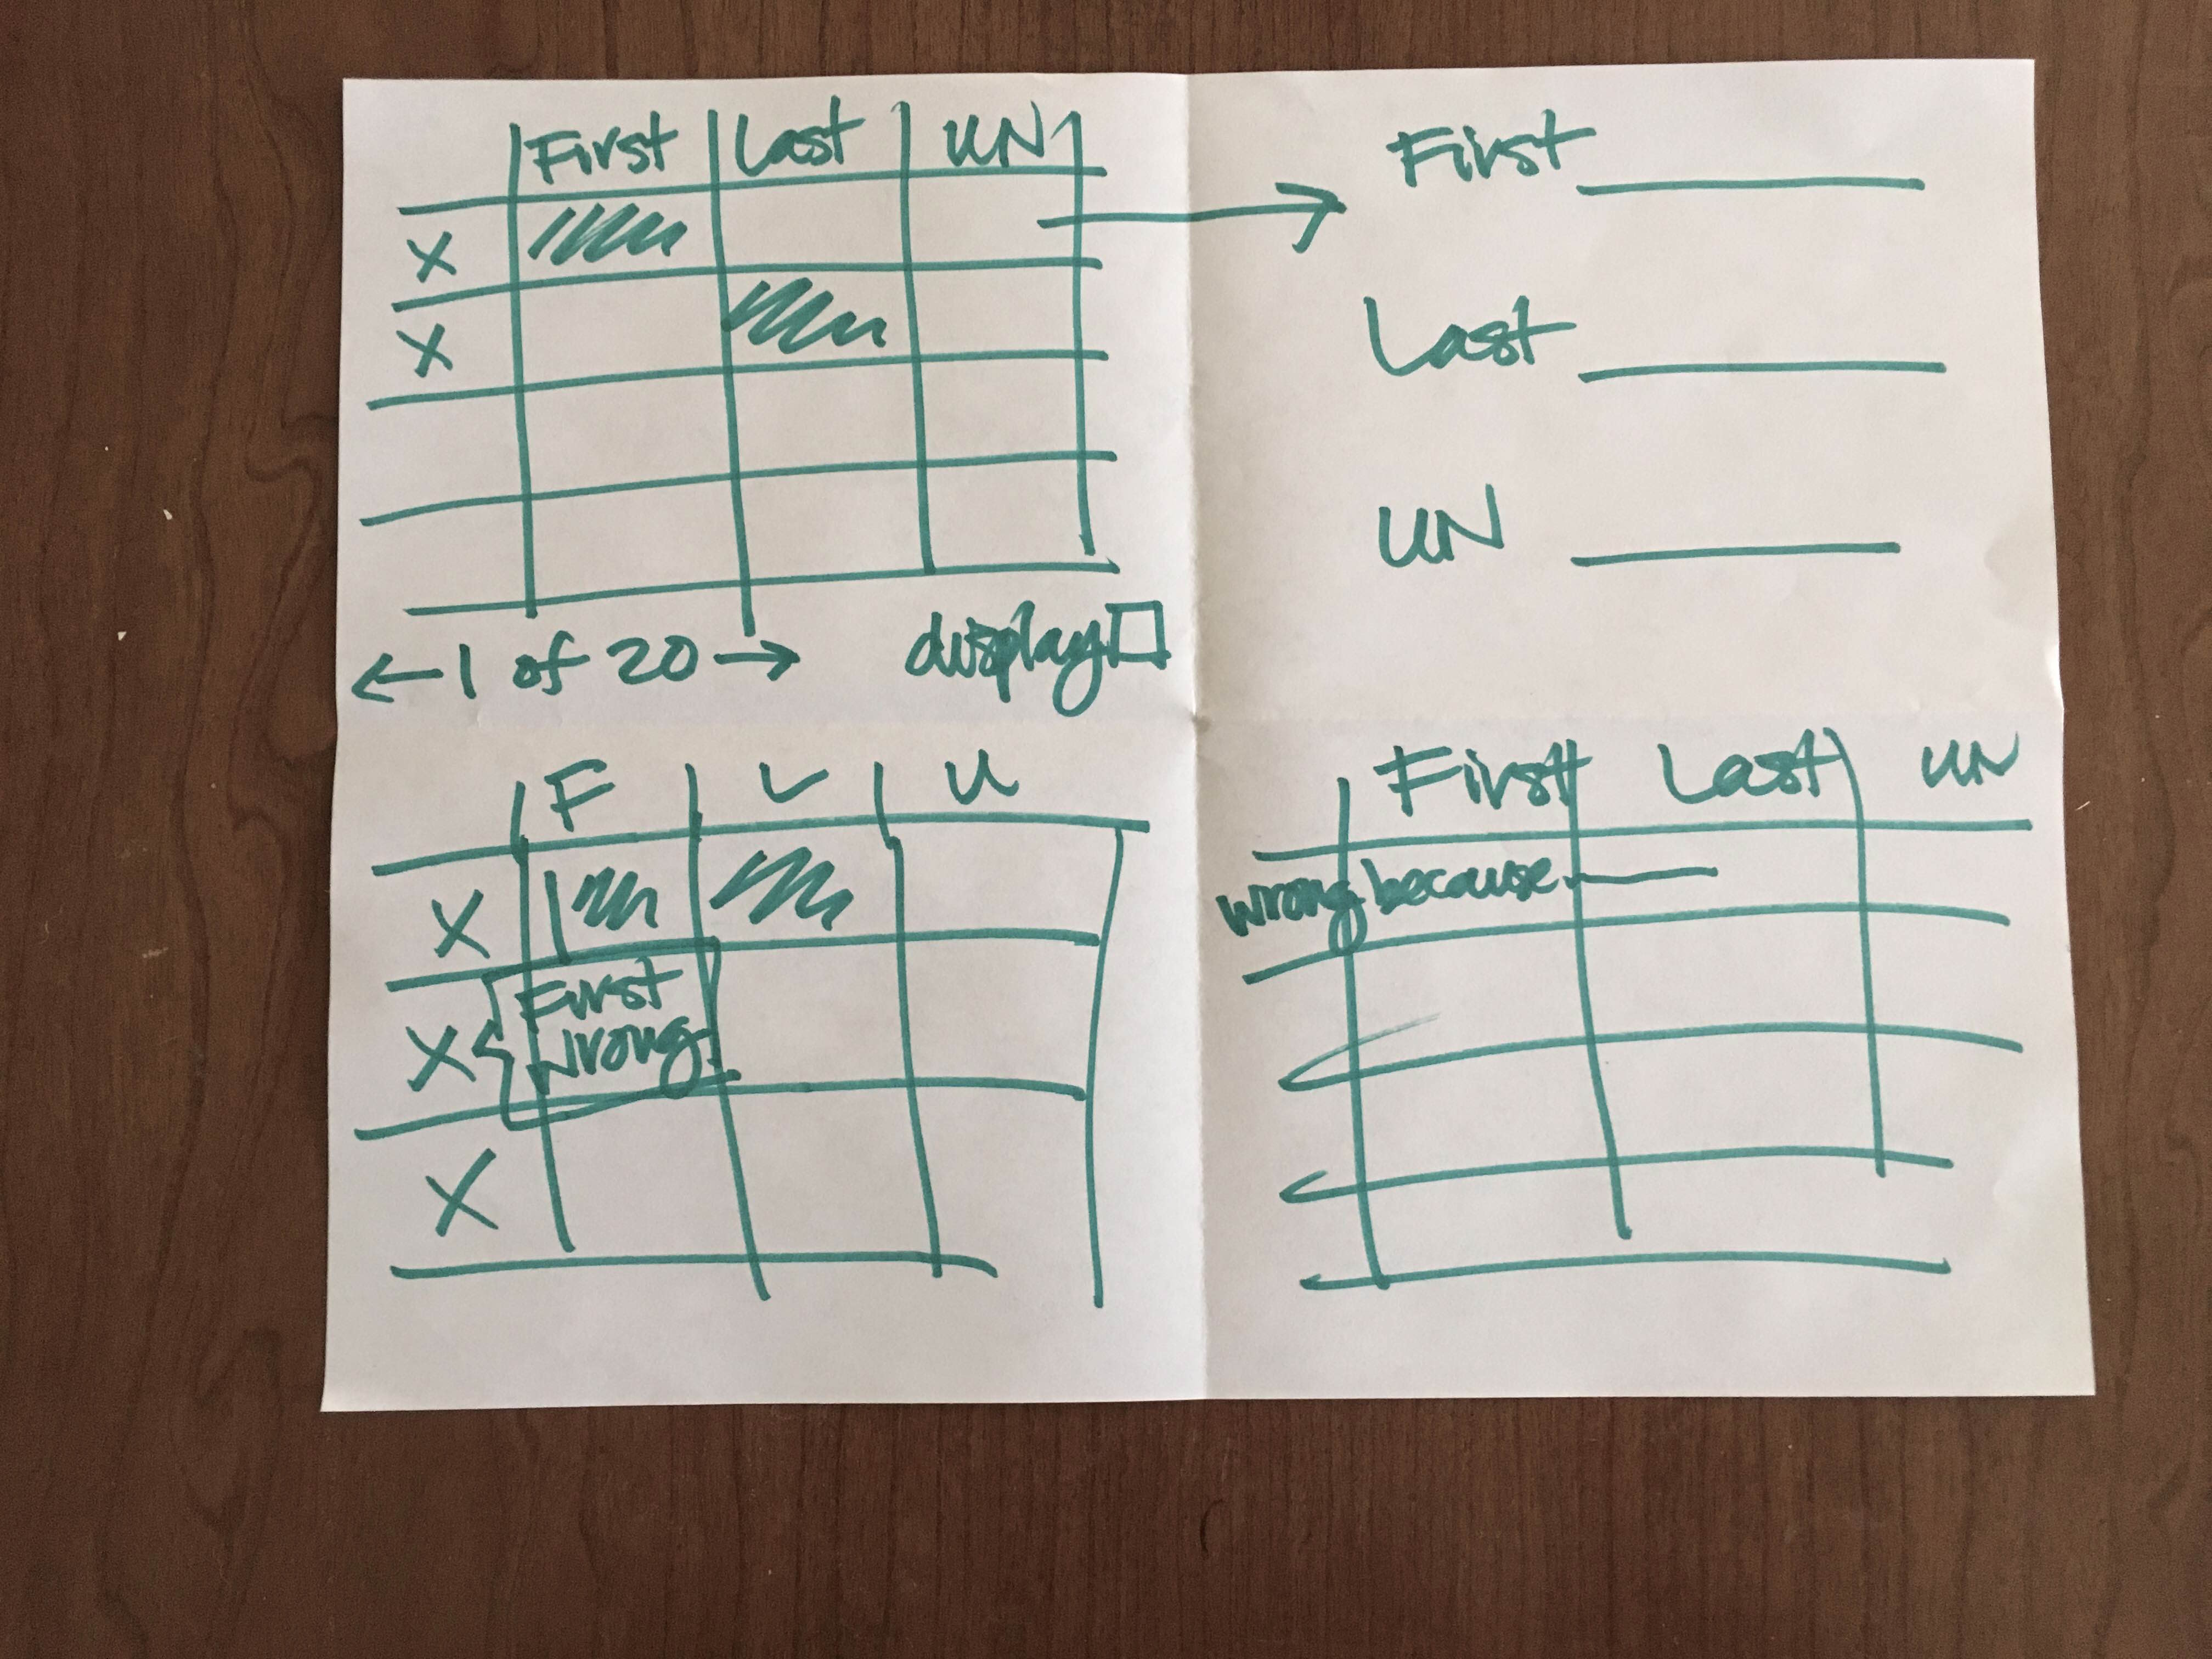 First Last UN
X
X
← 1 of 20 → display
First
Last
UN
F L U
X
X First
wrong
X
First Last UN
wrong because